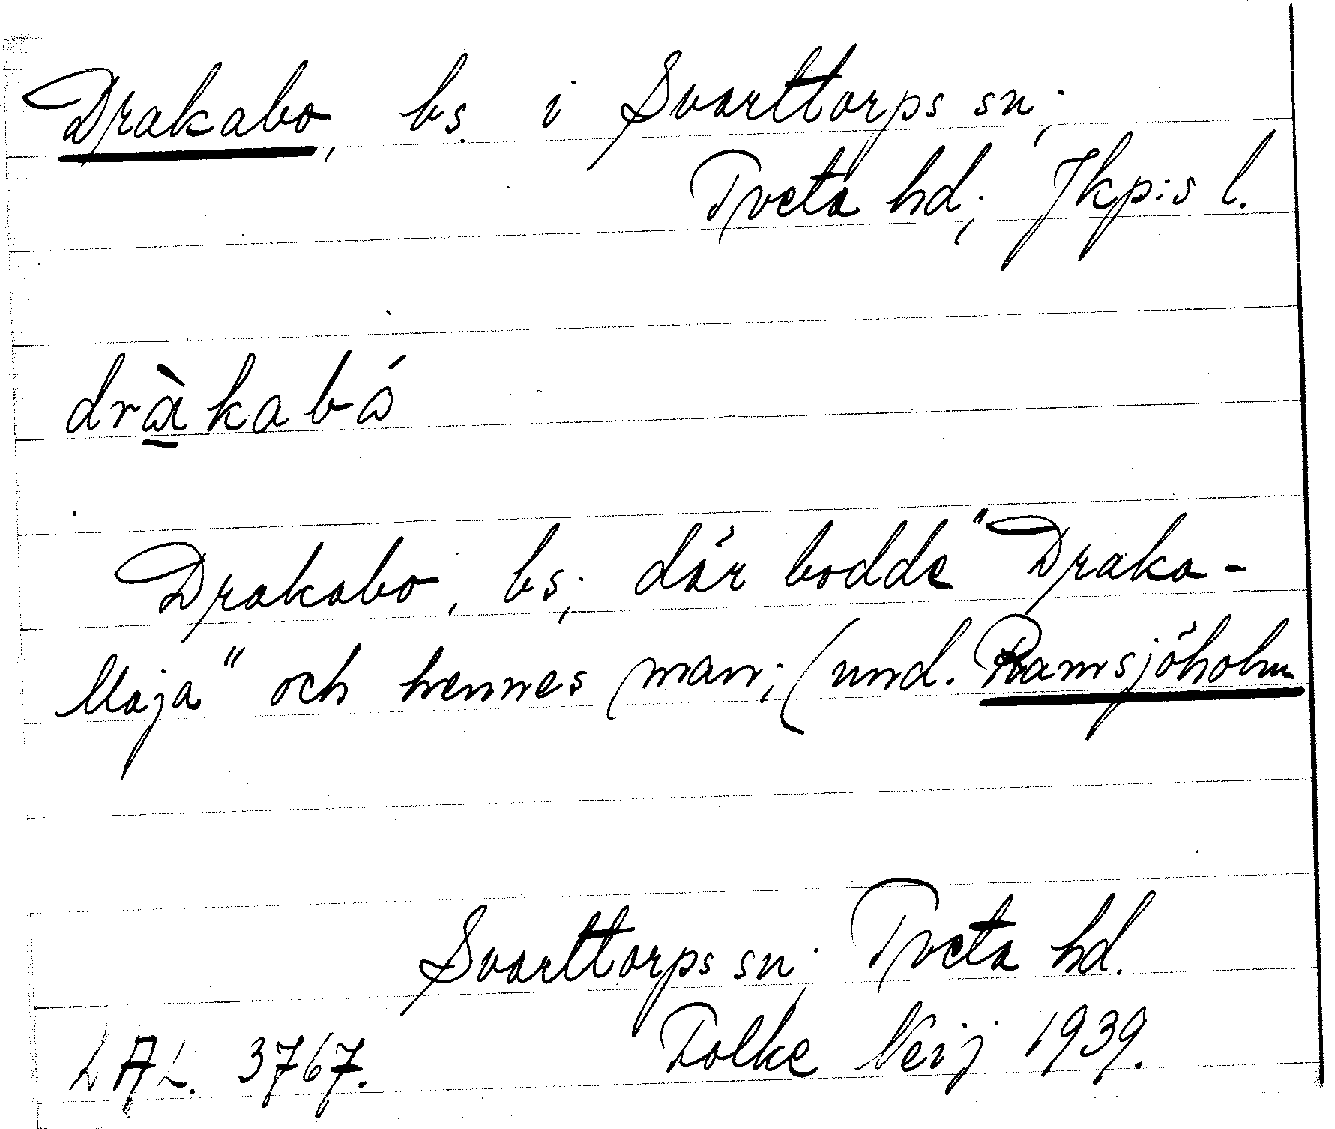 Drakabo, bs. i Svarttorps sn;
Tveta hd; Jkp:s l.
dràkabó
Drakabo, bs; där bodde "Draka-
Maja" och hennes man; (und. Ramsjöholm
Svarttorps sn; Tveta hd.
LAL. 3767. Folke Neij 1939.